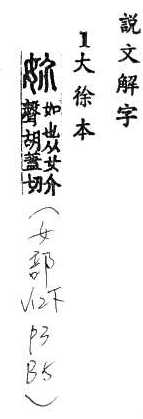 説文解字
1大徐本
妎
妎也从女介
聲胡蓋切
(女部 12下
P3
B5)